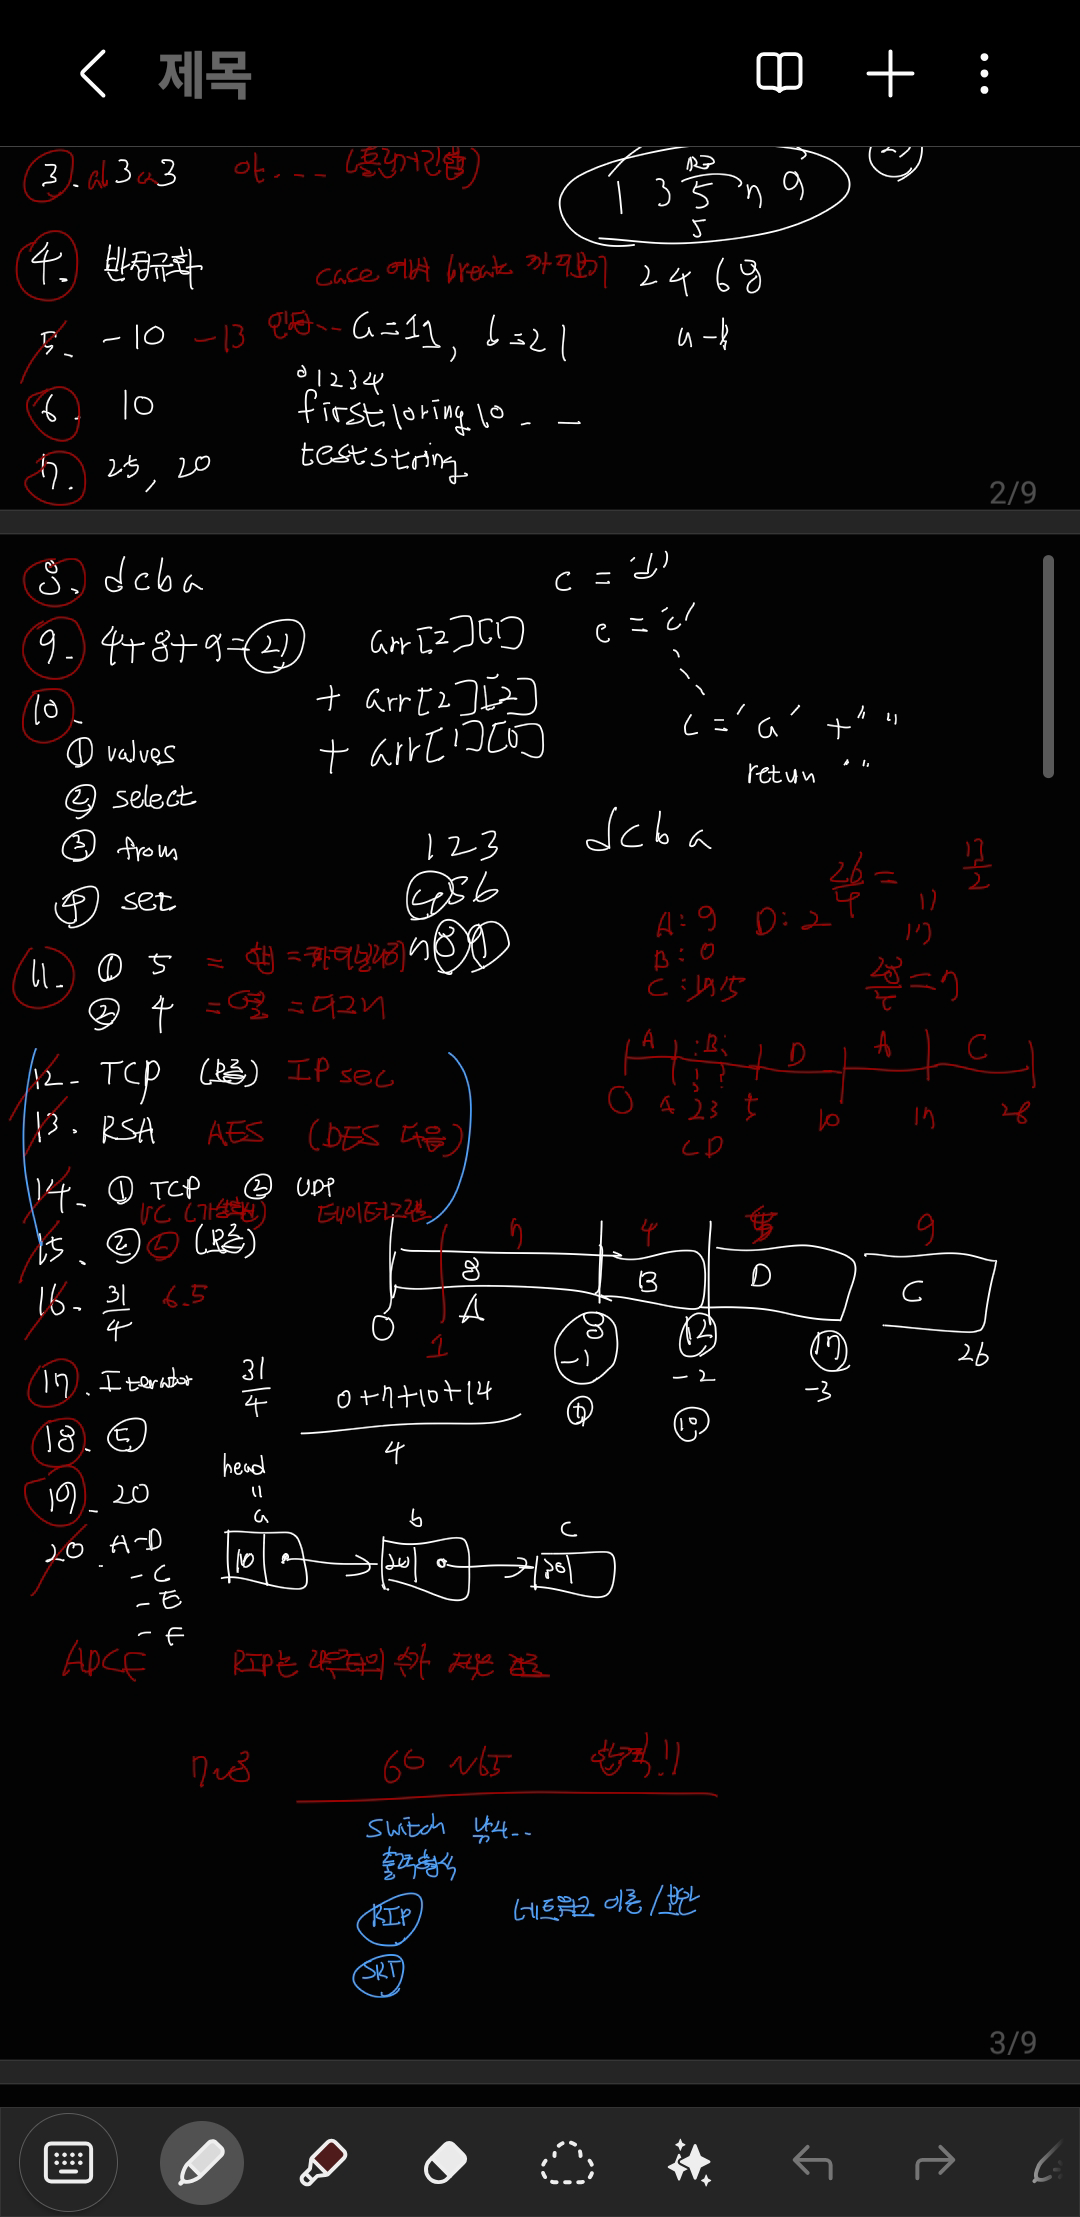 제목
3. ab3a3
1 3 5 7 9
5
4. 반정규화
case 에서 break
2 4 6 8
5. -10 -13
a=11, b=21
a-b
6. 10
0 1 2 3 4
first
7. 25, 20
teststring
2/9
8. dcba
c = 'd'
9. 4+8+9=21
arr[2][1]
c = 'c'
+ arr[2][2]
+ arr[1][0]
c = 'a' + " "
return " "
10.
① values
② select
③ from
④ set
1 2 3
4 5 6
7 8 9
d c b a
26/4 = 13/2
A: 9 D: 2
B: 0
C: 15
28/4 = 7
11. ① 5 = 행 = 카디널리티
② 4 = 열 = 디그리
12. TCP IPsec
13. RSA AES (DES 다음)
14. ① TCP ② UDP
VC 데이터그램
15. ② ⑤
16. 31/4 6.5
A B D A C
0 1 2 3 5 10 17 26
C D
7 4 5 9
8 B D C
A
0 1 8 12 17 26
-1 -2 -3
7 10
17. Iterator
31/4
0+7+10+14
4
18. ⑤
19. 20
head
"
a b c
10 20 30
20. A-D
-C
-E
-F
ADCF
RIP는 라우터의 수가 적은 경로
7~8 60 ~65 합격!!
switch
출력형식
RIP
네트워크 이론/보안
SRT
3/9